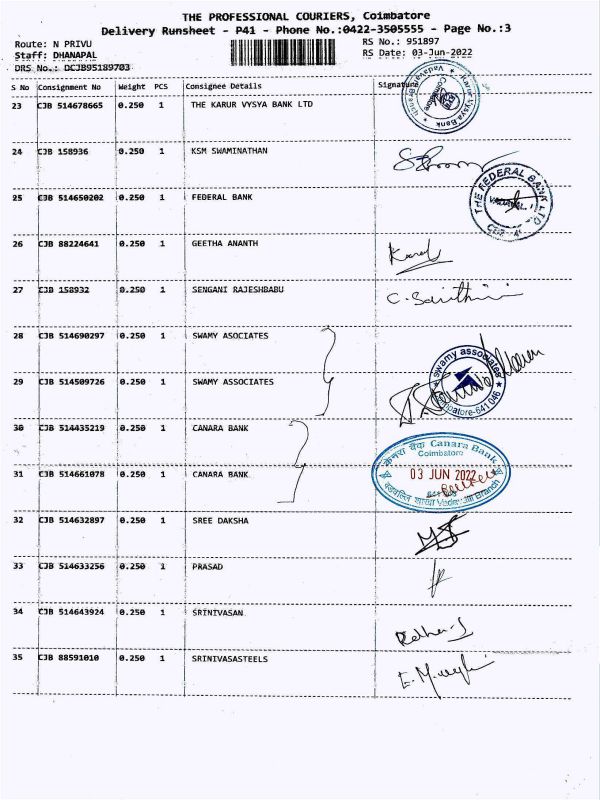 THE PROFESSIONAL COURIERS, Coimbatore
Delivery Runsheet - P41 - Phone No.:0422-3505555 - Page No.:3
Route: N PRIVU
RS No.: 951897
Staff: DHANAPAL
RS Date: 03-Jun-2022
DRS No.: DCJB95189703
S No Consignment No Weight PCS Consignee Details Signature
23 CJB 514678665 0.250 1 THE KARUR VYSYA BANK LTD
Karur Vysya Bank
24 CJB 158936 0.250 1 KSM SWAMINATHAN
25 CJB 514650202 0.250 1 FEDERAL BANK
THE FEDERAL BANK LTD
26 CJB 88224641 0.250 1 GEETHA ANANTH
27 CJB 158932 0.250 1 SENGANI RAJESHBABU
28 CJB 514690297 0.250 1 SWAMY ASOCIATES
swamy associates
29 CJB 514509726 0.250 1 SWAMY ASSOCIATES
641 046
30 CJB 514435219 0.250 1 CANARA BANK
केनरा बैंक Canara Bank
Coimbatore
31 CJB 514661078 0.250 1 CANARA BANK
03 JUN 2022
शाखा Branch
32 CJB 514632897 0.250 1 SREE DAKSHA
33 CJB 514633256 0.250 1 PRASAD
34 CJB 514643924 0.250 1 SRINIVASAN
35 CJB 88591010 0.250 1 SRINIVASASTEELS